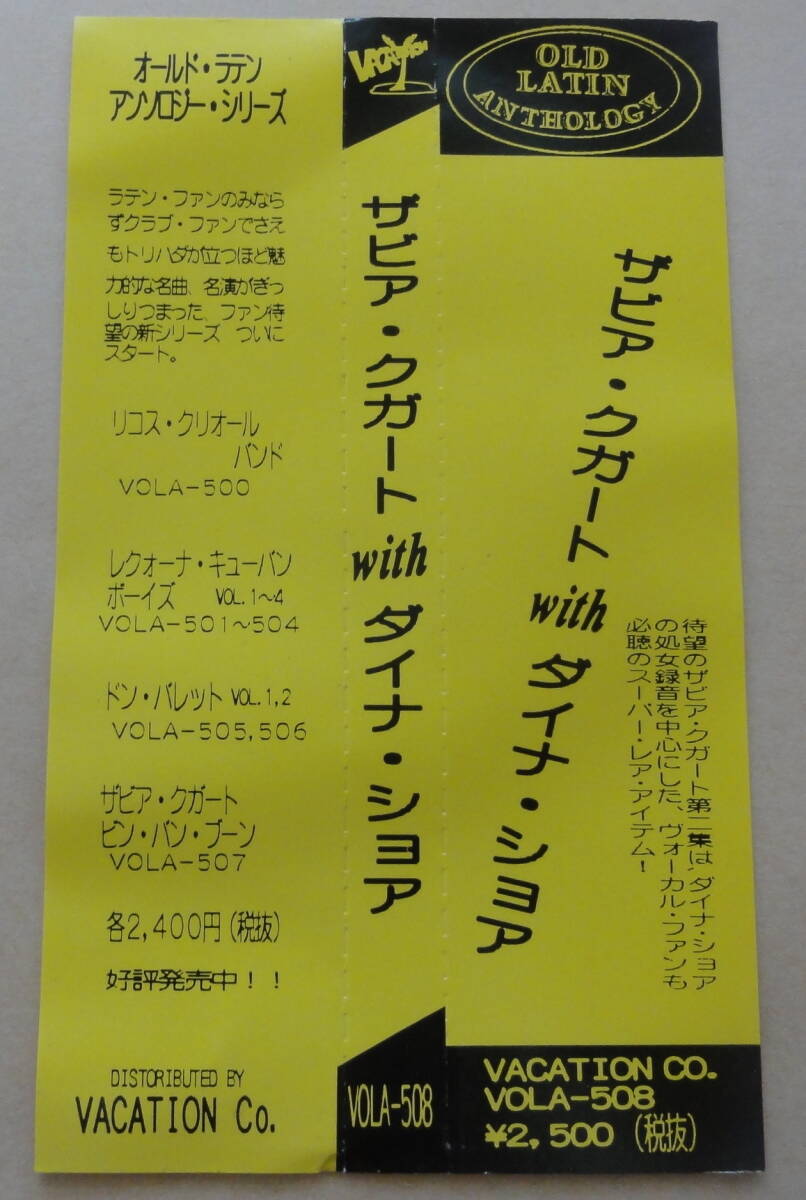 オールド・ラテン
アンソロジー・シリーズ
ラテン・ファンのみなら
ずクラブ・ファンでさえ
もトリハダが立つほど魅
力的な名曲、名演がぎっ
しりつまった、ファン待
望の新シリーズ ついに
スタート。
リコス・クリオール
バンド
VOLA-500
レクォーナ・キューバン
ボーイズ VOL.1〜4
VOLA-501〜504
ドン・バレット VOL.1,2
VOLA-505,506
ザビア・クガート
ビン・バン・ブーン
VOLA-507
各2,400円(税抜)
好評発売中!!
DISTORIBUTED BY
VACATION Co.
VACATION
ザビア・クガート with ダイナ・ショア
VOLA-508
OLD
LATIN
ANTHOLOGY
ザビア・クガート with ダイナ・ショア
待望のザビア・クガート第二集は、ダイナ・ショア
の処女録音を中心にした、ヴォーカル・ファンも
必聴のスーパー・レア・アイテム!
VACATION CO.
VOLA-508
¥2,500 (税抜)